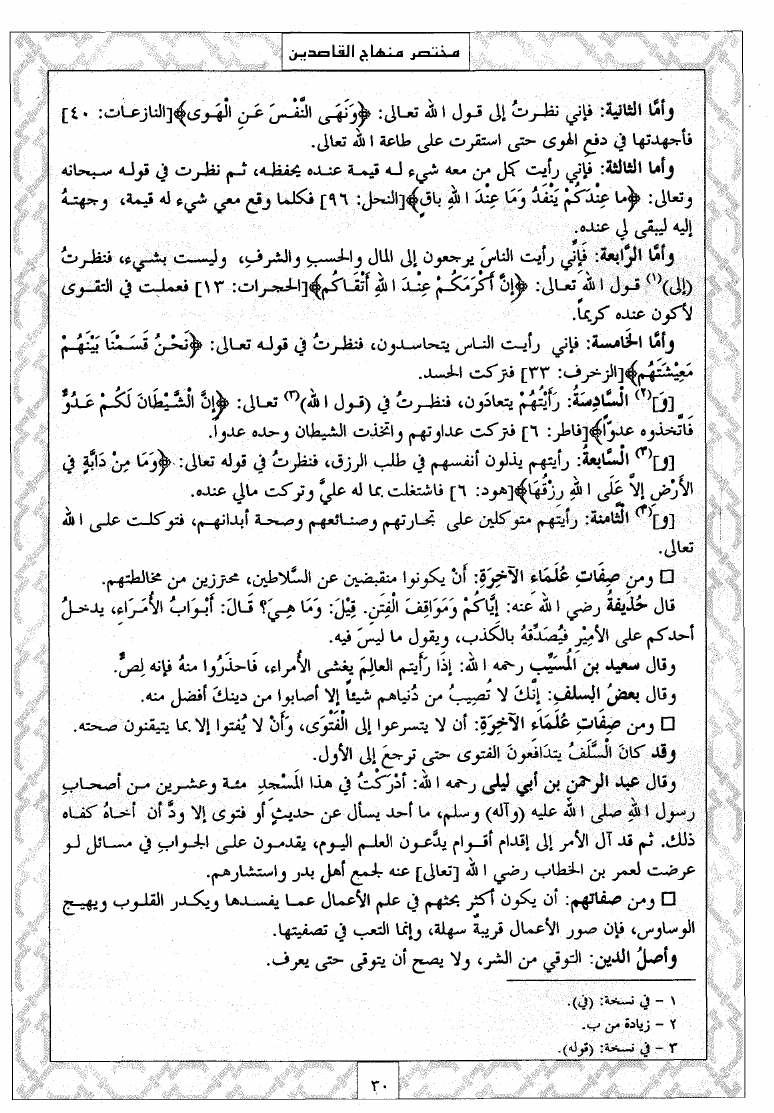 مختصر منهاج القاصدين
وأمَّا الثانية: فإني نظرتُ إلى قول الله تعالى: ﴿وَنَهَى النَّفْسَ عَنِ الْهَوى﴾[النازعات: ٤٠]
فأجهدتها في دفع الهوى حتى استقرت على طاعة الله تعالى.
وأما الثالثة: فإني رأيت كل من معه شيء له قيمة عنده يحفظه، ثم نظرت في قوله سبحانه
وتعالى: ﴿ما عِنْدَكُمْ يَنْفَدُ وَمَا عِنْدَ اللهِ باقٍ﴾[النحل: ٩٦] فكلما وقع معي شيء له قيمة، وجهتهُ
إليه ليبقى لي عنده.
وأمَّا الرَّابعة: فَإنِّي رأيت الناسَ يرجعون إلى المال والحسبِ والشرفِ، وليست بشيء، فنظرتُ
(إلى)(١) قول اللهِ تعالى: ﴿إنَّ أَكْرَمَكُمْ عِنْدَ اللهِ أَتْقَاكُم﴾[الحجرات: ١٣] فعملت في التقوى
لأكون عنده كريماً.
وأمَّا الخامسة: فإني رأيت الناس يتحاسدون، فنظرتُ في قوله تعالى: ﴿نَحْنُ قَسَمْنَا بَيْنَهُمْ
مَعِيشَتَهُم﴾[الزخرف: ٣٣] فتركت الحسد.
[وَ](٢) الْسَّادِسَةُ: رَأَيْتُهُمْ يتعادَون، فنظرتُ في (قول الله)(٣) تعالى: ﴿إنَّ الشَّيْطَانَ لَكُمْ عَدُوٌّ
فَاتَّخذوه عدوّاً﴾[فاطر: ٦] فتركت عداوتهم واتخذت الشيطان وحده عدواً.
[و](٣) الْسَّابعةُ: رأيتهم يذلون أنفسهم في طلب الرزق، فنظرتُ في قوله تعالى: ﴿وَمَا مِنْ دَابَّةٍ في
الأَرْضِ إلاَّ عَلَى اللهِ رِزْقُهَا﴾[هود: ٦] فاشتغلت بما له عليَّ وتركت مالي عنده.
[و](٣) الْثَّامنة: رأيتهم متوكلين على تجارتهم وصنائعهم وصحة أبدانهم، فتوكلت على الله
تعالى.
□ ومن صِفَاتِ عُلَمَاءِ الآخِرَةِ: أنْ يكونوا منقبضين عن السَّلاطين، محترزين من مخالطتهم.
قال حُذَيفةُ رضي الله عنه: إيَّاكُمْ وَمَوَاقِفَ الْفِتَنِ. قِيْلَ: وَمَا هِيَ؟ قَالَ: أَبْوَابُ الأُمَرَاءِ، يدخلُ
أحدكم على الأمِيْرِ فَيُصَدِّقهُ بالكَذبِ، ويقول ما ليسَ فيه.
وقال سعيد بن الْمُسَيِّب رحمه الله: إذَا رَأَيتم العالِمَ يغشى الأُمراء، فَاحذَرُوا منهُ فإنه لِصٌّ.
وقال بعضُ السلفِ: إنَّكَ لا تُصِيبُ من دُنياهم شيئاً إلا أصابوا من دينكَ أفضل منه.
□ ومن صِفاتِ عُلَمَاءِ الآخِرَةِ: أن لا يتسرعوا إلى الْفَتْوَى، وَأَنْ لا يُفتوا إلا بما يتيقنون صحته.
وقد كانَ الْسَّلَفُ يتدَافَعونَ الفتوى حتى ترجعَ إلى الأول.
وقال عبد الرحمن بن أبي ليلى رحمه الله: أدْرَكْتُ في هذا المَسْجدِ مئة وعشرين من أصحابِ
رسول اللهِ صلى الله عليه (وآله) وسلم، ما أحد يسأل عن حديثٍ أو فتوى إلا ودَّ أن أخاهُ كفاه
ذلك. ثم قد آل الأمر إلى إقدام أقوام يدَّعون العلم اليوم، يقدمون على الجواب في مسائل لو
عرضت لعمر بن الخطاب رضي الله [تعالى] عنه لجمع أهل بدر واستشارهم.
□ ومن صفاتهم: أن يكون أكثر بحثهم في علم الأعمال عما يفسدها ويكدر القلوب ويهيج
الوساوس، فإن صور الأعمال قريبةٌ سهلة، وإنما التعب في تصفيتها.
وأصلُ الدين: التوقي من الشر، ولا يصح أن يتوقى حتى يعرف.
١ - في نسخة: (في).
٢ - زيادة من ب.
٣ - في نسخة: (قوله).
٣٠